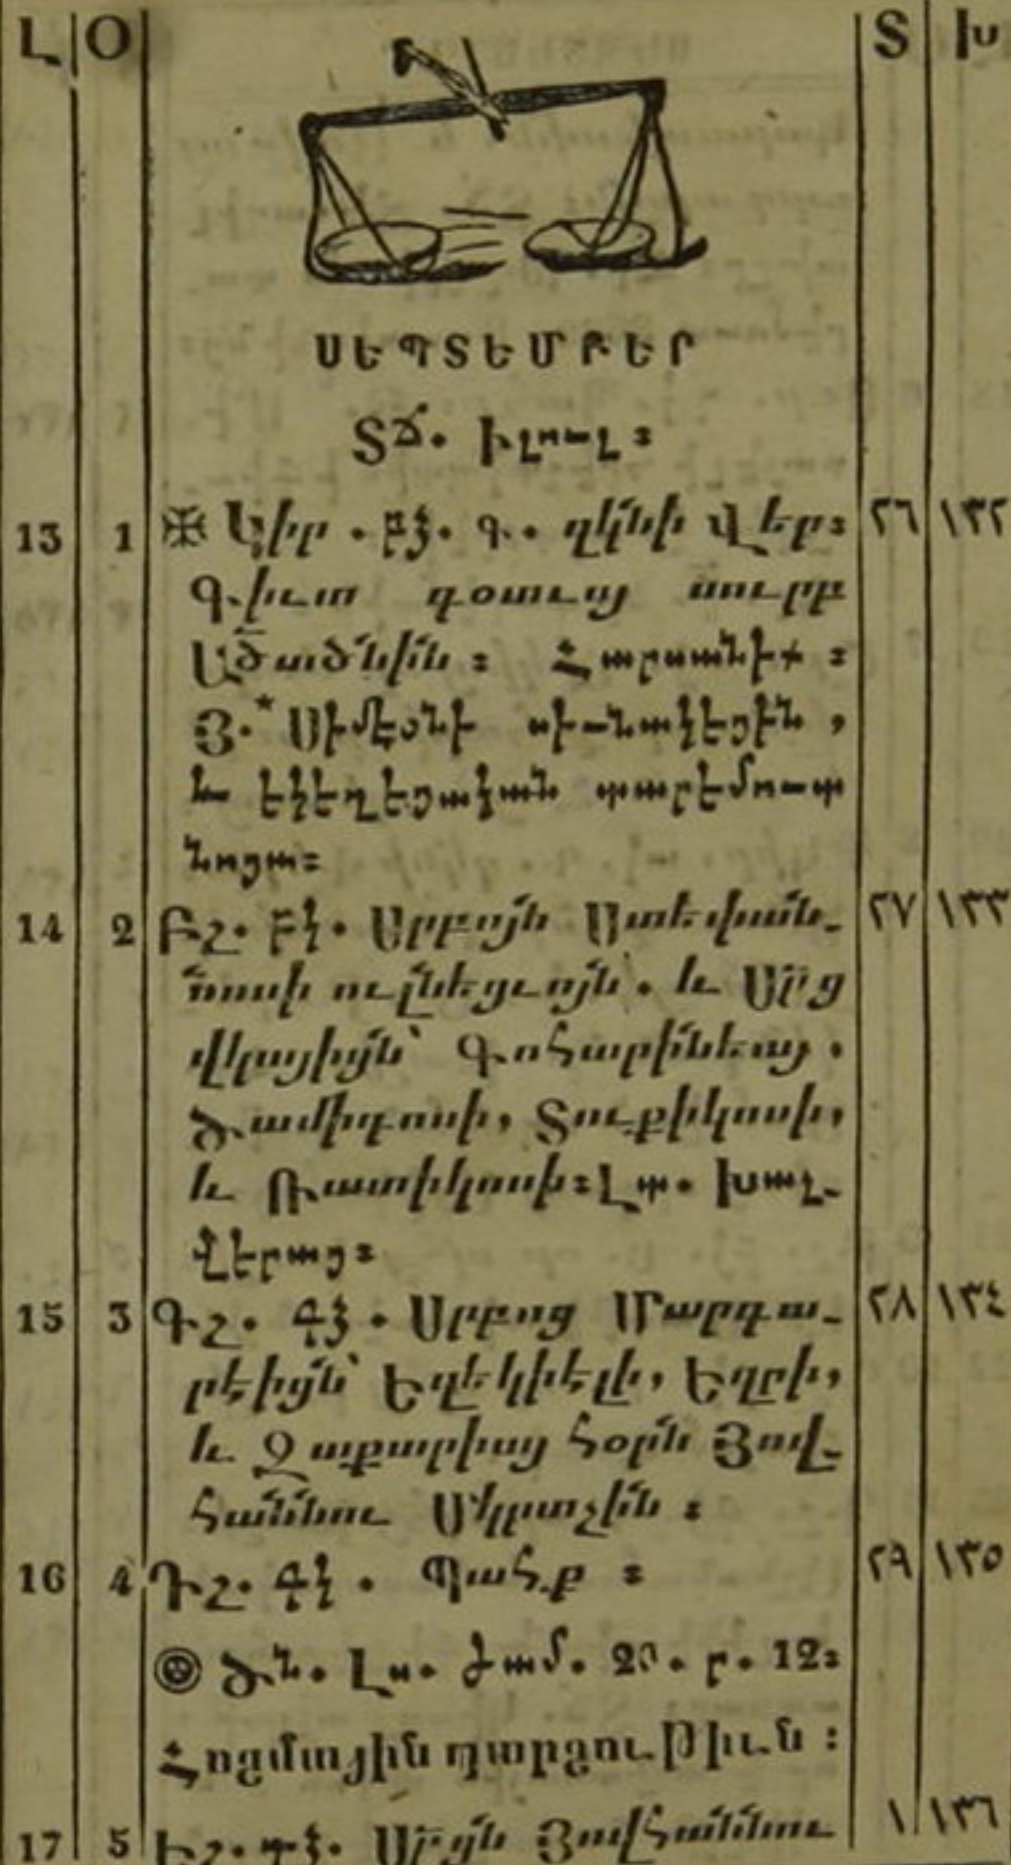 Լ Օ Տ Խ
ՍԵՊՏԵՄԲԵՐ
ՏՃ. Իլուլ։
13 1 ✠ Կիր. ԲՁ. Գ. զկնի Վեր։ ٢٦ ١٣٢
Գիւտ գօտւոյ սուրբ
Ած̄ածնին։ Հարսանիք։
Յ.* Սիմէօնի սիւնակեցին,
և եկեղեցական տարեմուտ
նոցա։
14 2 Բշ. ԲԿ. Սրբոյն Ստեփան- ٢٧ ١٣٣
նոսի ուլնեցւոյն. և Սրց
վկայիցն՝ Գոհարինեայ,
Ծամիդոսի, Տուքիկոսի,
և Ռատիկոսի։ Լտ. խաչ-
վերաց։
15 3 Գշ. ԳՁ. Սրբոց Մարգա- ٢٨ ١٣٤
րէիցն՝ Եզեկիէլի, Եզրի,
և Զաքարիայ հօրն Յով-
հաննու Մկրտչին։
16 4 Դշ. ԳԿ. Պահք։ ٢٩ ١٣٥
Ծն. Լս. ժամ. 20. ր. 12։
Հողմային պարզութիւն։
17 5 Եշ. ԴՁ. Սրբյն Յովհաննու ١ ١٣٦